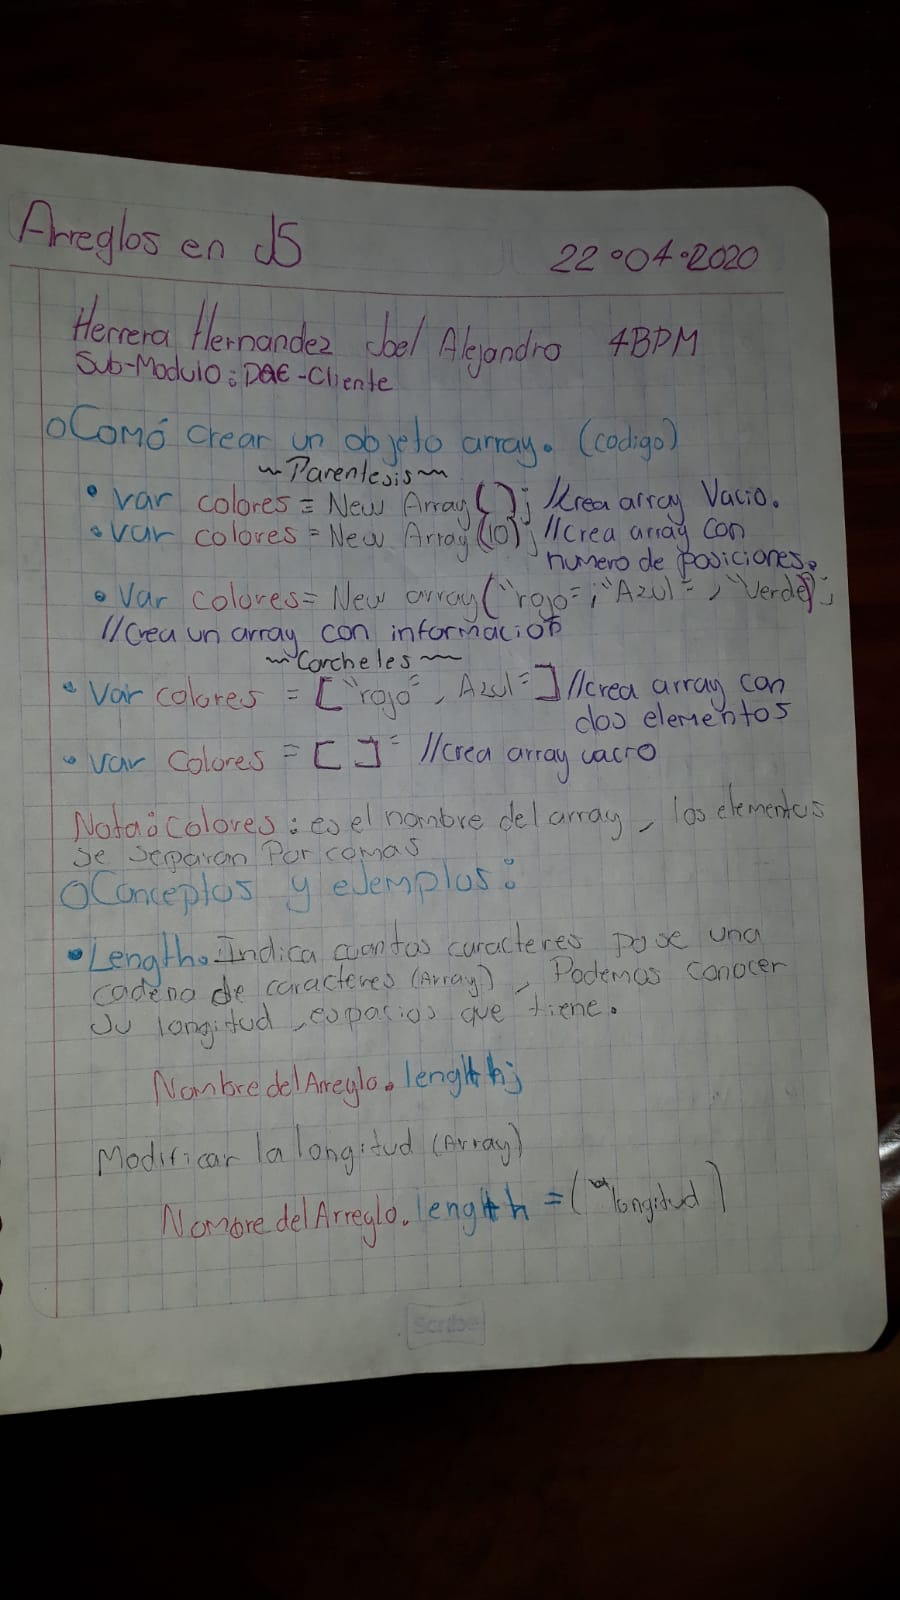 Arreglos en JS
22-04-2020
Herrera Hernandez Joel Alejandro 4BPM
Sub-Modulo: DAE-Cliente
Comó crear un objeto array. (codigo)
~Parentesis~
• var colores = New Array(); //crea array Vacio.
• var colores = New Array(10); //Crea array con
numero de posiciones.
• Var colores= New array("rojo", "Azul", "Verde");
//Crea un array con informacion
~Corcheles~
• Var colores = ["rojo", Azul"] //crea array con
dos elementos
• var Colores = [] //crea array vacio
Nota: Colores: es el nombre del array, los elementos
se separan Por comas
Conceptos y ejemplos:
• Length. Indica cuantos caracteres pose una
cadena de caracteres (Array), Podemos conocer
su longitud, espacios que tiene.
Nombre del Arreglo.length;
Modificar la longitud (Array)
Nombre del Arreglo.length = (longitud)
Scribe